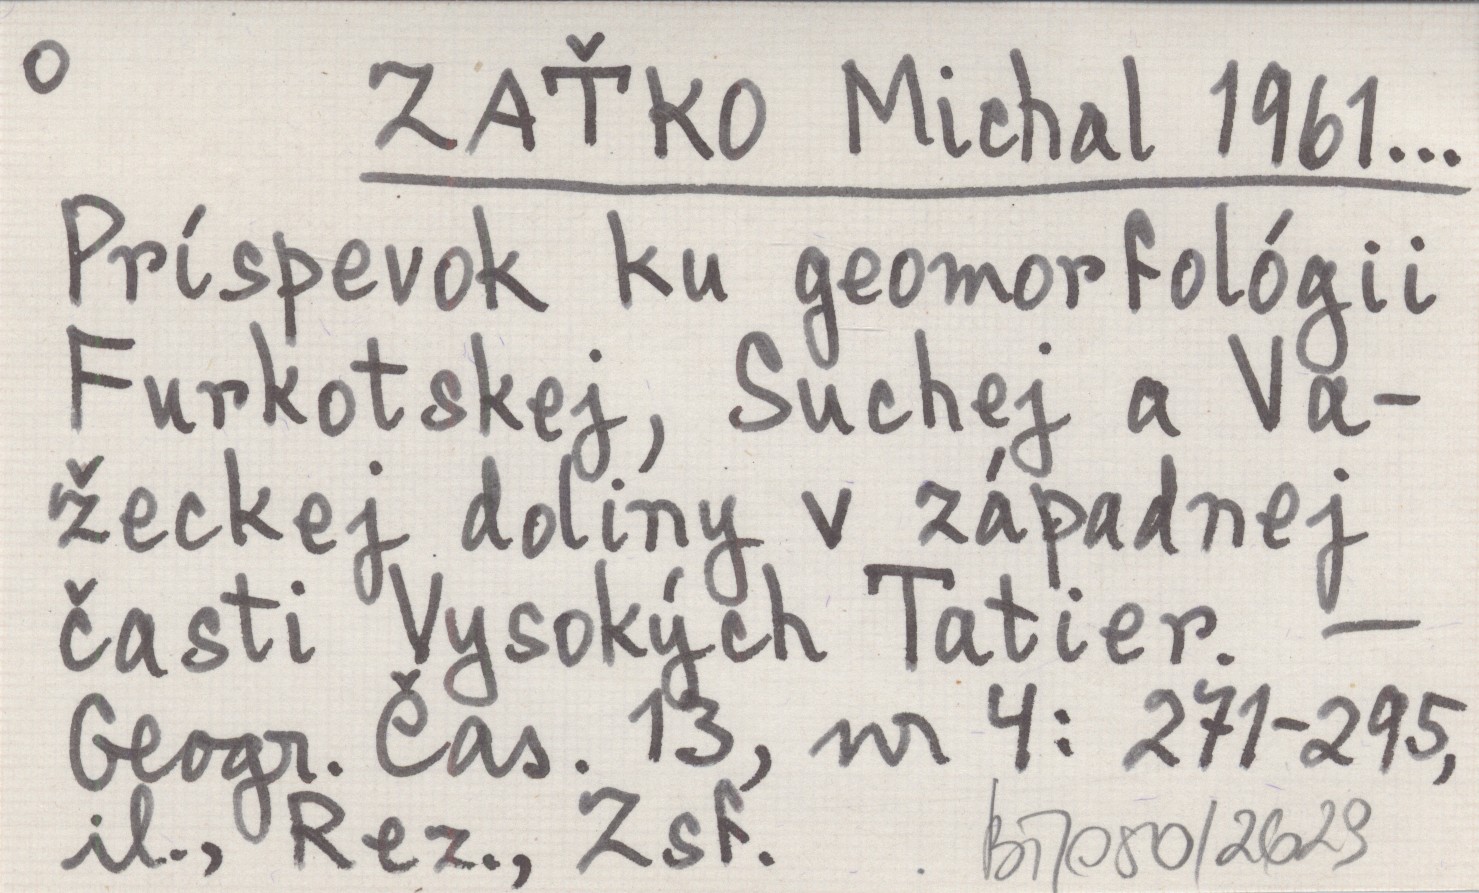 o ZAŤKO Michal 1961...
Príspevok ku geomorfológii
Furkotskej, Suchej a Va-
žeckej doliny v západnej
časti Vysokých Tatier. —
Geogr. Čas. 13, nr 4: 271-295,
il., Rez., Zsf.